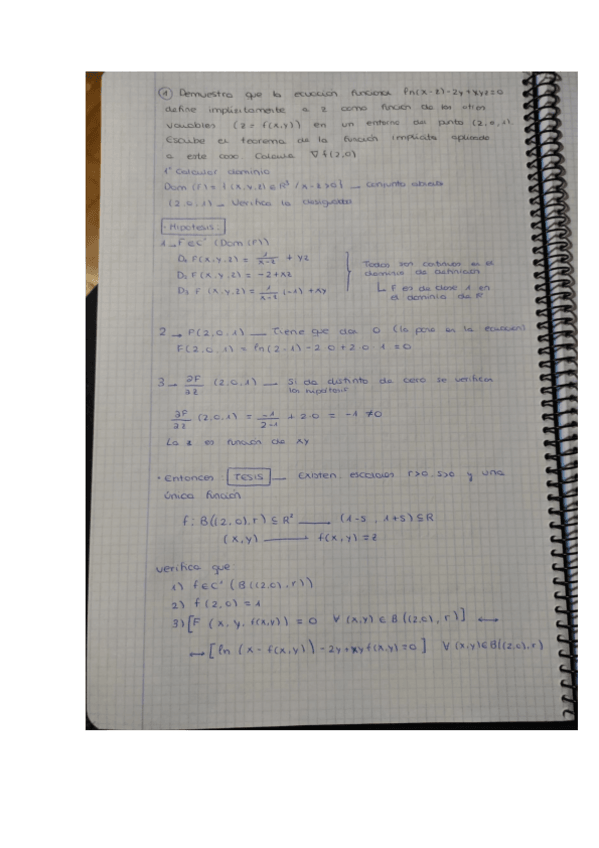 ① Demuestra que la ecuación funciona ln(x-z)-2y+xyz=0
define implícitamente a z como función de las otras
variables (z = f(x,y)) en un entorno del punto (2,0,1).
Escribe el teorema de la función implícita aplicado
a este caso. Calcula ∇f(2,0)
1º Calcular dominio
Dom (F) = {(x,y,z) ∈ R³ / x-z>0} _ conjunto abierto
(2,0,1) _ Verifica la desigualdad
· Hipótesis:
1_ F ∈ C¹ (Dom (F))
D₁ F(x,y,z) = 1/(x-z) + yz
D₂ F(x,y,z) = -2+xz
D₃ F(x,y,z) = 1/(x-z) (-1) + xy
Todas son continuas en el
dominio de definición
↳ F es de clase 1 en
el dominio de F
2_ F(2,0,1) __ Tiene que dar 0 (lo pone en la ecuación)
F(2,0,1) = ln(2-1) - 2·0 + 2·0·1 = 0
3_ ∂F/∂z (2,0,1) _ Si da distinto de cero se verifican
las hipótesis
∂F/∂z (2,0,1) = -1/(2-1) + 2·0 = -1 ≠0
La z es función de xy
· Entonces TESIS __ Existen escalares r>0, s>0 y una
única función
f: B((2,0),r) ⊆ R² ____ (1-s, 1+s) ⊆ R
(x,y) ⟶ f(x,y) = z
verifica que
1) f ∈ C¹ (B((2,0),r))
2) f(2,0) = 1
3) [F (x,y,f(x,y)) = 0 ∀ (x,y) ∈ B((2,0),r)] ⟷
⟷ [ln (x - f(x,y)) - 2y + xy f(x,y) = 0] ∀ (x,y) ∈ B((2,0),r)